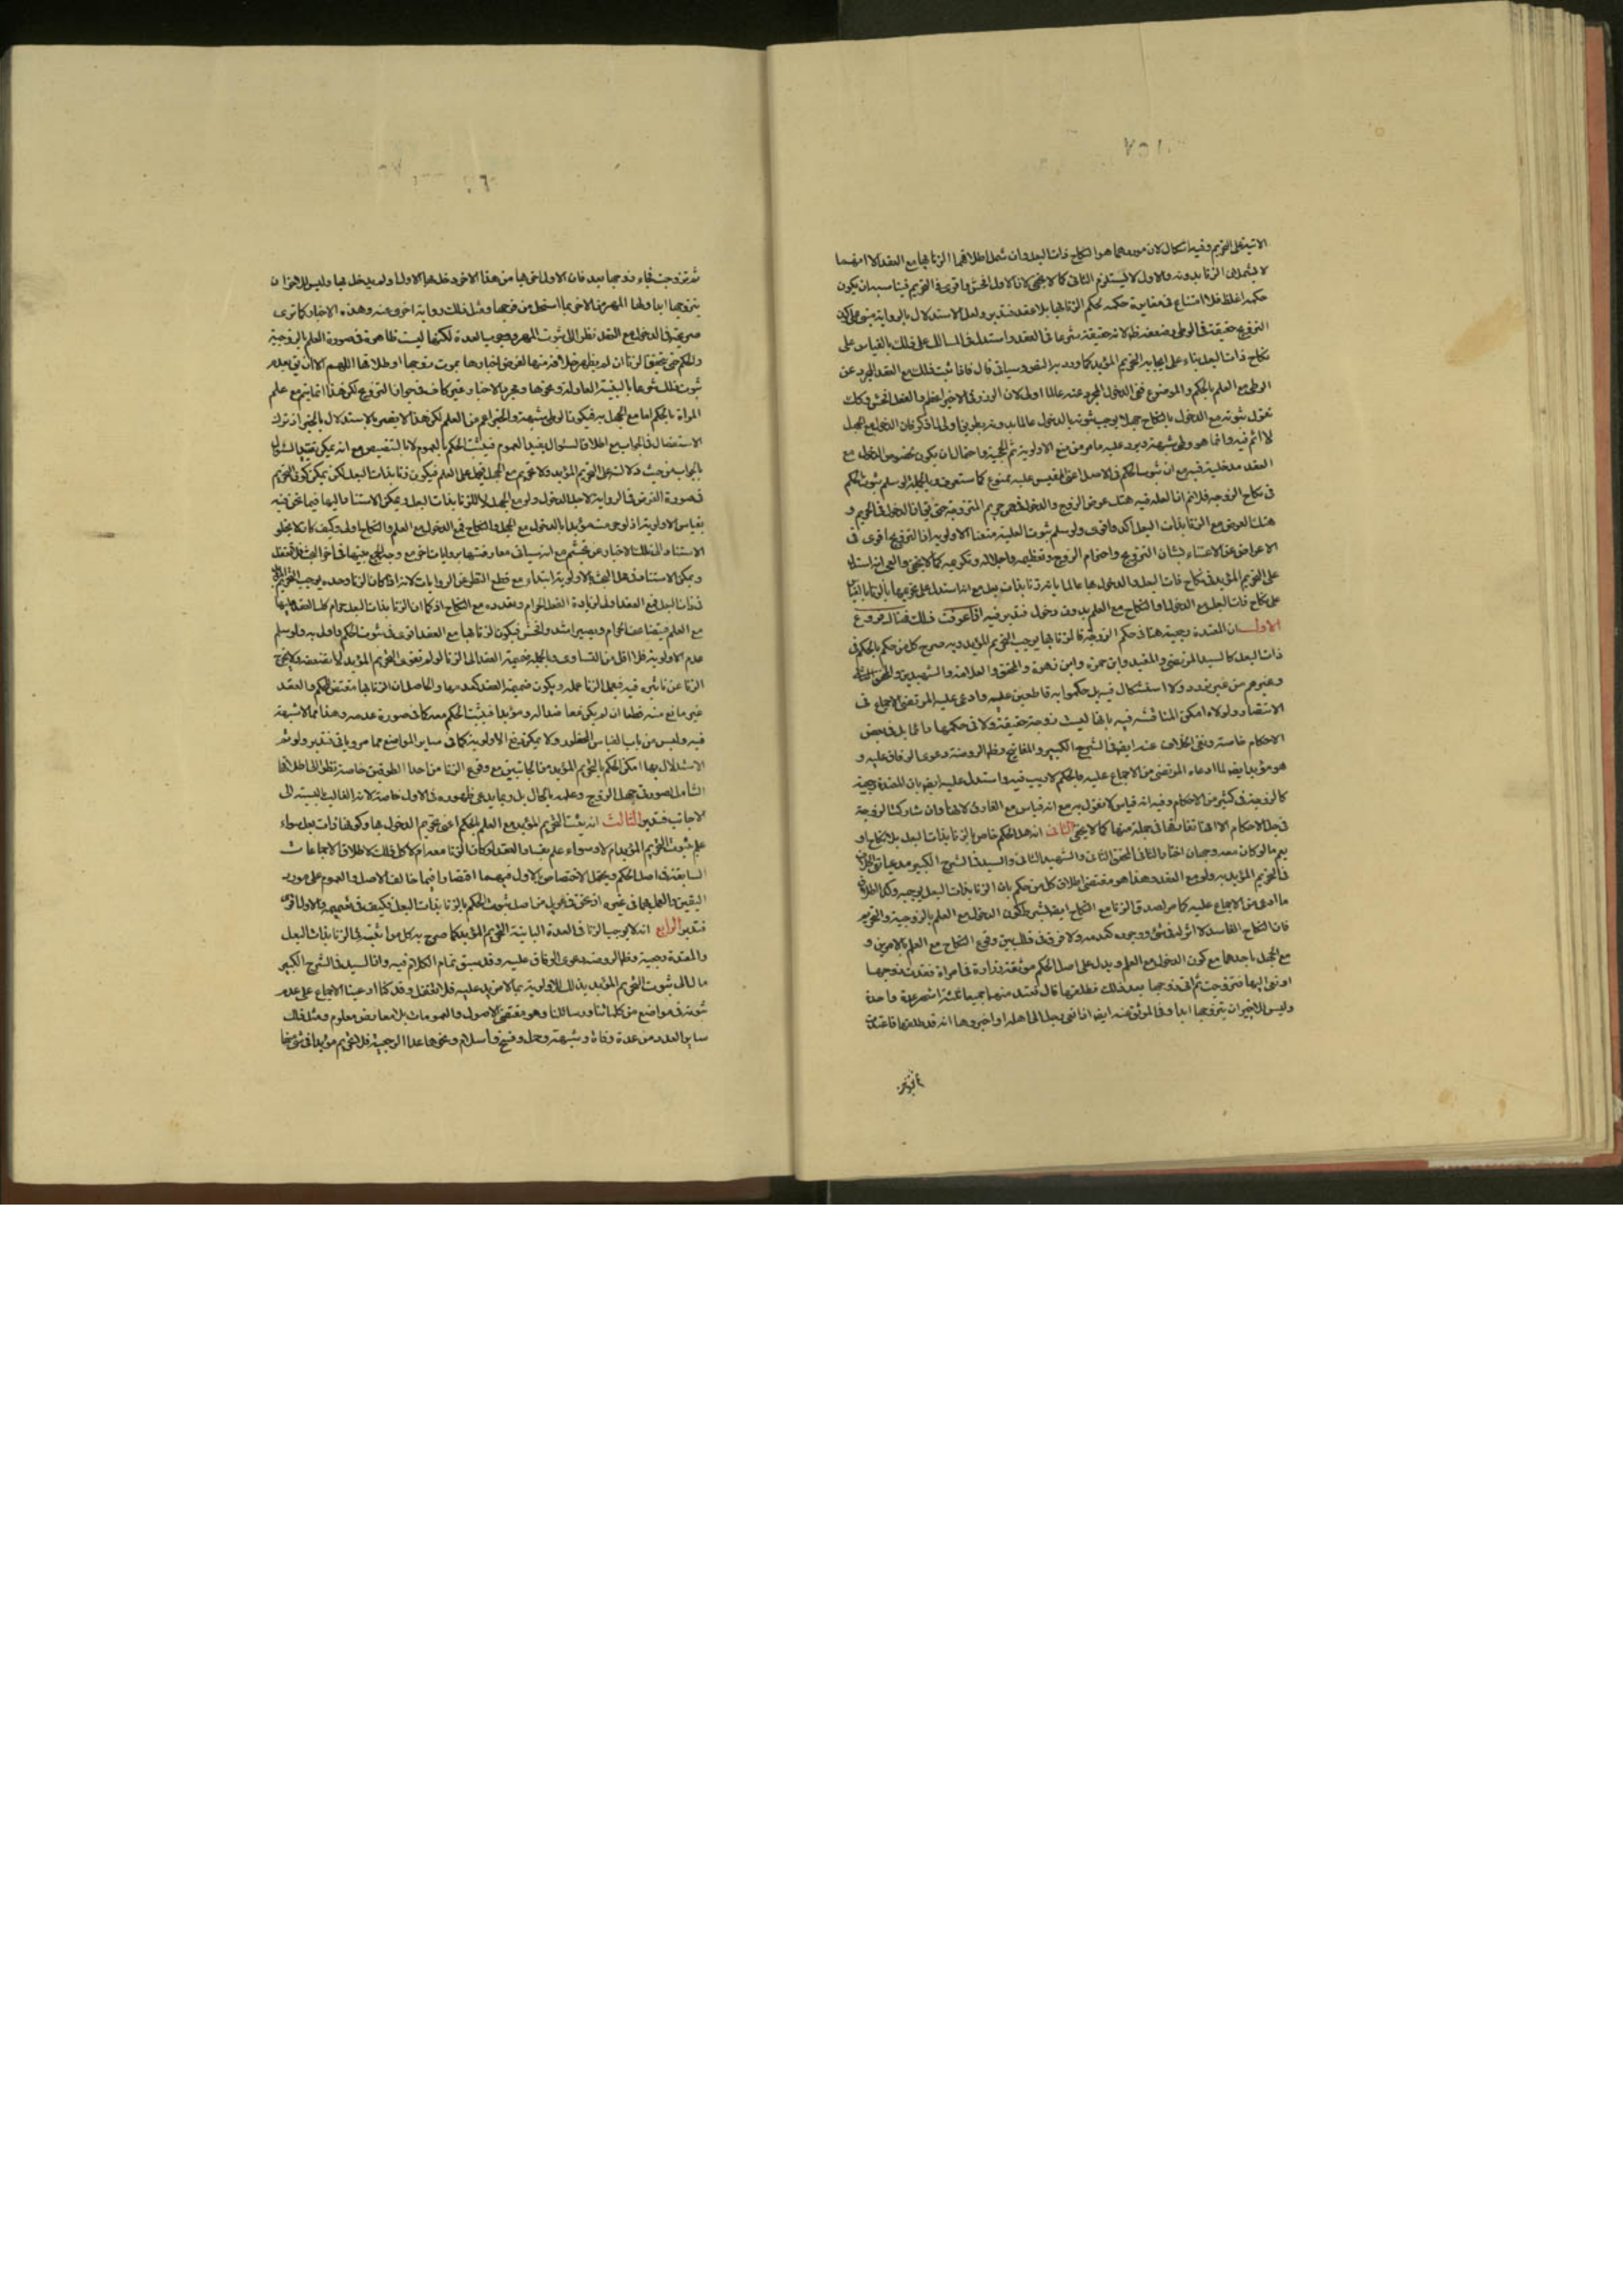 الآتية على التحريم وفيه اشكال لان موردهما هو النكاح ذات البعل وان شمل اطلاقهما الزنا بها مع العقد الا انهما
لا يشملان الزنا بدونه والاول لا يستلزم الثاني كما لا يخفى لان الاول افحش واقوى في التحريم فيناسبه ان يكون
حكمه اغلظ فلا امتناع في مغايرة حكمه لحكم الزنا بها بلا عقد فتدبر ولعل الاستدلال بالرواية مبني على كون
التزويج حقيقة في الوطي وضعفه ظ لانه حقيقة شرعا في العقد واستدل في المسالك على ذلك بالقياس على
نكاح ذات البعل بناء على ايجابه التحريم المؤبد كما ورد به النص وسياتي قال فاذا ثبت ذلك مع العقد المجرد عن
الوطي مع العلم بالحكم والموضوع فمع الدخول المجرد عنه عالما اولى لان الوزر في الاخير اعظم والفعل افحش وكك
نقول ثبوته مع الدخول بالنكاح جهلا يوجب ثبوته بالدخول عالما بدونه بطريق اولى لما ذكر فان الدخول مع الجهل
لا اثم فيه وانما هو وطي شبهة ويرد عليه ما مر من منع الاولوية ثم الحجية واحتمال ان يكون لخصوص الدخول مع
العقد مدخلية فيه مع ان ثبوت الحكم في الاصل اعني المقيس عليه ممنوع كما ستعرف وبالجملة لو سلم ثبوت الحكم
في نكاح الزوجة فلا نم ان العلة فيه هتك عرض الزوج والدخول في حريم المتزوجة حتى يق ان الدخول في الحريم و
هتك العرض مع الزنا بذات البعل آكد واقوى ولو سلم ثبوت العلية منعنا الاولوية اذ التزويج اقوى في
الاعراض عن الاعتناء بشان التزويج واحترام الزوج وتعظيمه واجلاله وتكريمه كما لا يخفى والعجب انه استدل
على التحريم المؤبد في نكاح ذات البعل والدخول بها عالما بانه زنا بذات بعل مع انه استدل على تحريمها بالزنا بالقياس
على نكاح ذات البعل مع الدخول او النكاح مع العلم بدون دخول فتدبر فيه اذا عرفت ذلك فهنا فروع
الاول ان المعتدة رجعية هنا في حكم الزوجة فالزنا بها يوجب التحريم المؤبد وبه صرح كل من حكم بالحكم في
ذات البعل كالسيد المرتضى والمفيد وابن حمزة وابن زهرة والمحقق والعلامة والشهيدين والمحقق الثاني
وغيرهم من غير تردد ولا استشكال فيه بل حكموا به قاطعين عليه وادعى عليه المرتضى الاجماع في
الانتصار ولولاه امكن المناقشة فيه بانها ليست زوجة حقيقة ولا في حكمها دائما بل في بعض
الاحكام خاصة ونفى الخلاف عنه ايضا في الشرح الكبير والمفاتيح وظ الروضة دعوى الوفاق عليه و
هو مؤيد ايضا لما ادعاه المرتضى من الاجماع عليه فالحكم لا ريب فيه واستدل عليه ايضا بان المعتدة رجعية
كالزوجة في كثير من الاحكام وفيه انه قياس لا نقول به مع انه قياس مع الفارق لانها وان شاركت الزوجة
في جل الاحكام الا انها تفارقها في جملة منها كما لا يخفى الثاني انه هل الحكم خاص بالزنا بذات البعل بلا نكاح او
يعم ما لو كان معه وجهان اختار الثاني المحقق الثاني والشهيد الثاني والسيد في الشرح الكبير مدعيا نفي الخلاف
في التحريم المؤبد به ولو مع العقد وهذا هو مقتضى اطلاق كل من حكم بان الزنا بذات البعل يوجبه وكذا اطلاق
ما ادعي من الاجماع عليه كما مر لصدق الزنا مع النكاح ايضا بشرط كون الدخول مع العلم بالزوجية والتحريم
فان النكاح الفاسد لا اثر له في شئ ووجوده كعدمه ولا فرق في ذلك بين وقوع النكاح مع العلم بالامرين و
مع الجهل باحدهما مع كون الدخول مع العلم ويدل على اصل الحكم موثقة زرارة في امراة فقدت زوجها
او نعي اليها فتزوجت ثم اتى زوجها بعد ذلك فطلقها قال تعتد منهما جميعا ثلثة اشهر عدة واحدة
وليس للاخير ان يتزوجها ابدا وفي الموثق عنه ايضا اذا نعي رجل الى اهله او اخبروها انه قد طلقها فاعتدت
ثم تزوجت
ثم تزوجت فجاء زوجها بعد فان الاول احق بها من هذا الاخر دخل بها الاول او لم يدخل بها وليس للاخر ان
يتزوجها ابدا ولها المهر من الاخر بما استحل من فرجها ومثل ذلك رواية اخرى عنه وهذه الاخبار كما ترى
صريحة في الدخول مع العقد نظرا الى ثبوت المهر ووجوب العدة لكنها ليست ظاهرة في صورة العلم بالزوجية
والحكم حتى يتحقق الزنا ان لم يظهر خلافه منها لفرض اخبارها بموت زوجها او طلاقها اللهم الا ان يق بعدم
ثبوت ذلك شرعا بالبينة العادلة ونحوها ومجرد الاخبار غير كاف في جواز التزويج لكن هذا انما يتم مع علم
المراة بالحكم اما مع الجهل به فيكون الوطي شبهة والخبر اعم من العلم لكن هذا لا يضر بالاستدلال بالخبر اذ ترك
الاستفصال في الجواب مع اطلاق السؤال يفيد العموم فيثبت الحكم بالعموم لا بالتنصيص مع انه يمكن تقييد السؤال
بالجواب من حيث دلالته على التحريم المؤبد ولا تحريم مع الجهل فيحمل على العلم فيكون زنا بذات البعل لكن يمكن كون التحريم
في صورة الفرض في الرواية لاجل الدخول ولو مع الجهل لا للزنا بذات البعل ويمكن الاستناد اليها فيما نحن فيه
بقياس الاولوية اذ لو حرمت مؤبدا بالدخول مع الجهل والنكاح فمع الدخول مع العلم والنكاح اولى وكيف كان لا يخلو
الاستناد الى ذلك الاخبار عن تجشم مع انه سياتي معارضتها بروايات اخر مع وجه الجمع بينها في اخر البحث فلا تغفل
ويمكن الاستناد في هذا البحث بالاولوية ابتداء مع قطع النظر عن الروايات لانه اذا كان الزنا وحده يوجب التحريم
في ذات البعل فمع العقد اولى لزيادة الفعل الحرام وتعدده مع النكاح اذ كما ان الزنا بذات البعل حرام كذا العقد عليها
مع العلم فيتضاعف الحرام ويصير اشد وافحش فيكون الزنا بها مع العقد اقوى في ثبوت الحكم واولى به ولو سلم
عدم الاولوية فلا اقل من التساوي وبالجملة ضميمة العقد الى الزنا لو لم تقو التحريم المؤبد لا تضعفه ولا تخرج
الزنا عن تاثيره فيه فيعمل الزنا عمله ويكون ضميمة العقد كعدمها والحاصل ان الزنا بها مقتض للحكم والعقد
غير مانع منه قطعا ان لم يكن معاضدا له ومؤيدا فيثبت الحكم معه كما في صورة عدمه وهذا مما لا شبهة
فيه وليس من باب القياس المحظور ولا يمكن منع الاولوية كما في ساير المواضع مما مر وياتي فتدبر ولو تم
الاستدلال بها امكن الحكم بالتحريم المؤبد من الجانبين مع وقوع الزنا من احد الطرفين خاصة نظرا الى اطلاقها
الشامل لصورتي جهل الزوج وعلمه بالحال بل ربما يدعى ظهوره في الاول خاصة لانه الغالب بالنسبة الى
الاجانب فتدبر الثالث انه يثبت التحريم المؤبد مع العلم بالحكم اعني تحريم الدخول بها وكونها ذات بعل سواء
علم بثبوت التحريم المؤبد ام لا وسواء علم بفساد العقد لو كان الزنا معه ام لا كل ذلك لاطلاق الاجماعات
السابقة في اصل الحكم ويحتمل الاختصاص بالاول فيهما اقتصارا فيما خالف الاصل والعموم على مورد
اليقين والعمل بهما في غيره اذ نحن في قلق من اصل ثبوت الحكم بالزنا بذات البعل فكيف في تعميمه والاول اقوى
فتدبر الرابع انه لا يوجب الزنا في العدة البائنة التحريم المؤبد كما صرح به كل من اثبته في الزنا بذات البعل
والمعتدة رجعية وظ الروضة دعوى الوفاق عليه وقد سبق تمام الكلام فيه وان السيد في الشرح الكبير
مال الى ثبوت التحريم المؤبد بذلك للاولوية بما لا مزيد عليه فلا تغفل وقد كنا ادعينا الاجماع على عدم
ثبوته في مواضع من كلماتنا ورسائلنا وهو مقتضى الاصول والعمومات بلا معارض معلوم ومثل ذلك
ساير العدد من عدة وفاة وشبهة وحمل وفسخ واسلام ونحوها عدا الرجعية فلا تحريم مؤبدا في شئ منها